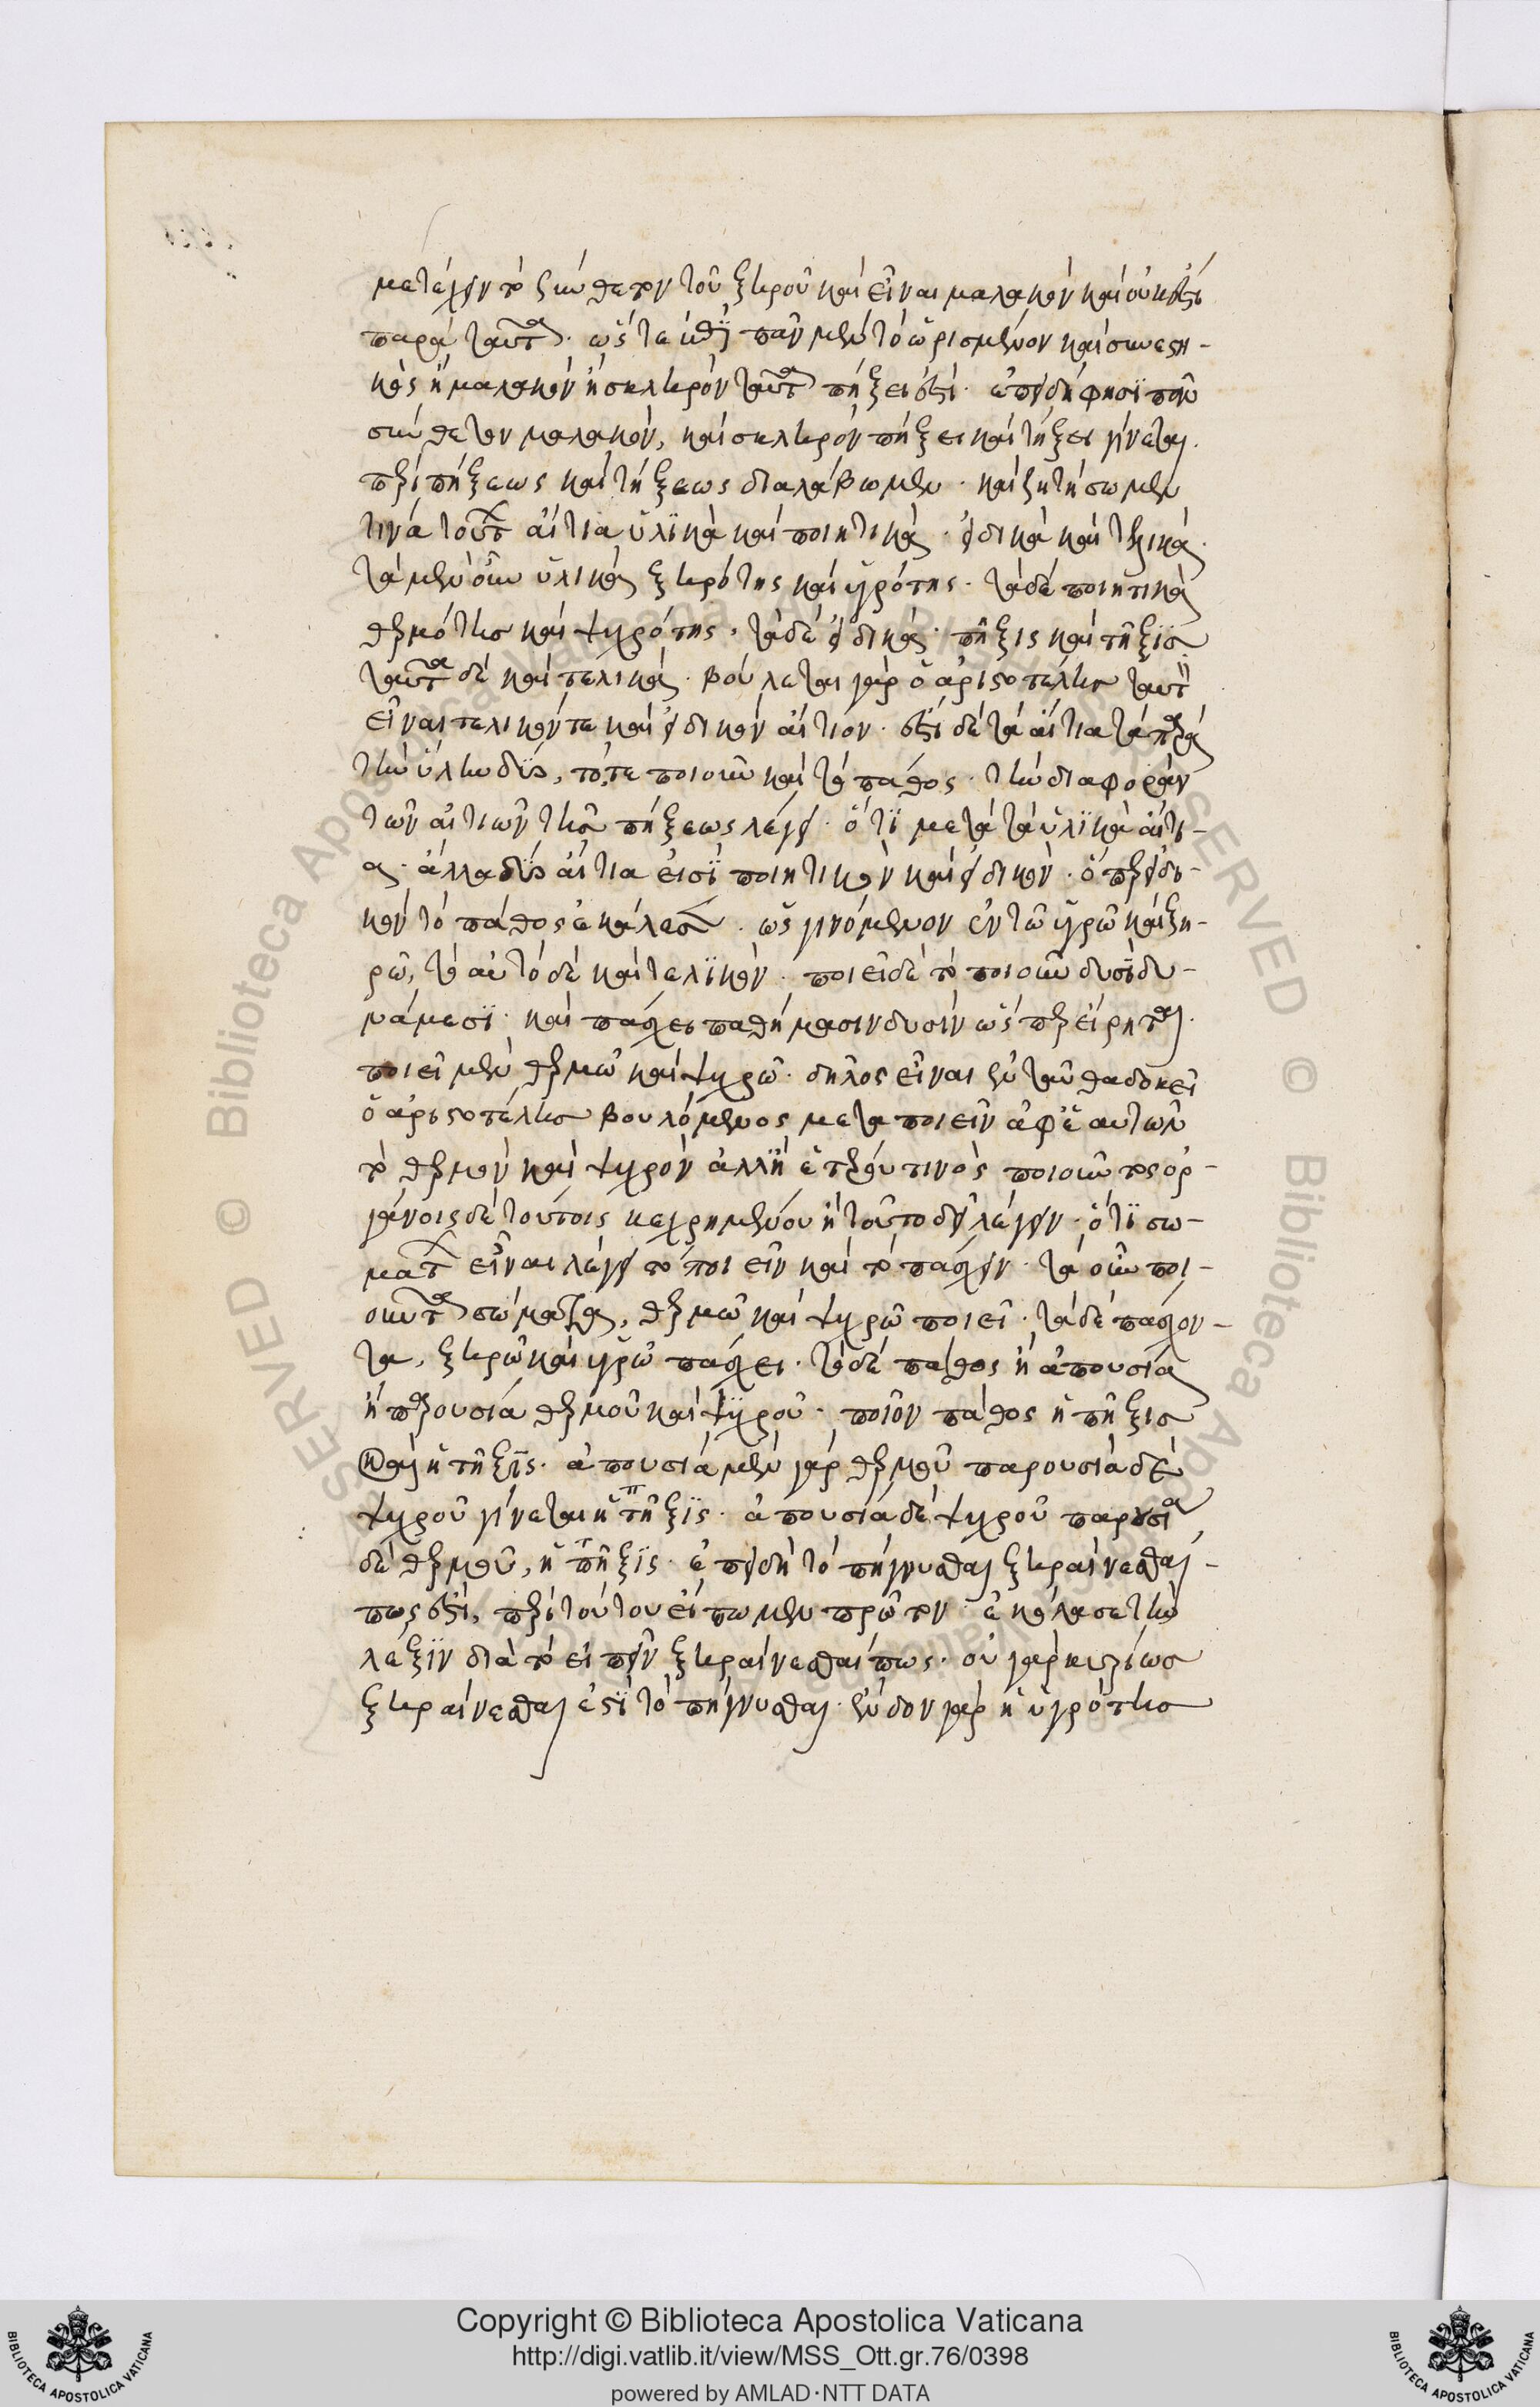 μετέχειν τὸ σύνθετον τοῦ ξηροῦ καὶ εἶναι μαλακὸν καὶ οὐκ ἔστι
παρὰ ταῦτα. ὥστε πᾶν μὲν τὸ ὡρισμένον καὶ συνεστη-
κὸς ἢ μαλακὸν ἢ σκληρὸν ταῦτα πήξει ἐστί. ἐπειδή φησι πᾶν
σύνθετον μαλακόν, καὶ σκληρὸν πήξει καὶ τήξει γίνεται.
περὶ πήξεως καὶ τήξεως διαλάβωμεν. καὶ ζητήσωμεν
τινὰ τούτων αἴτια ὑλικὰ καὶ ποιητικά. εἰδικὰ καὶ τελικά.
τὰ μὲν οὖν ὑλικὰ ξηρότης καὶ ὑγρότης. τὰ δὲ ποιητικὰ
θερμότης καὶ ψυχρότης. τὰ δὲ εἰδικὰ. πῆξις καὶ τῆξις
ταῦτα δὲ καὶ τελικά. βούλεται γὰρ ὁ ἀριστοτέλης ταυτὸν
εἶναι τελικόν τε καὶ εἰδικὸν αἴτιον. ἐστὶ δὲ τὰ αἴτια τὰ παρὰ
τὴν ὕλην δύο, τό, τε ποιοῦν καὶ τὸ πάθος. τὴν διαφορὰν
τῶν αἰτιῶν τῆς πήξεως λέγει. ὅτι μετὰ τὰ ὑλικὰ αἴτι-
α. ἀλλα δύο αἴτια εἰσὶ ποιητικὸν καὶ εἰδικὸν. ὅπερ εἰδι-
κὸν τὸ πάθος ἐκάλεσεν. ὡς γινόμενον ἐν τῶ ὑγρῶ καὶ ξη-
ρῶ, τὸ αὐτὸ δὲ καὶ τελικόν. ποιεῖ δὲ τὸ ποιοῦν δυσὶ δυ-
νάμεσι. καὶ πάσχει παθήμασιν δυσὶν ὥσπερ εἴρηται.
ποιεῖ μὲν θερμῶ καὶ ψυχρῶ. δῆλος εἶναι ἐνταῦθα δοκεῖ
ὁ ἀριστοτέλης βουλόμενος μεταποιεῖν ἀφ' ἑαυτῶν
τὸ θερμὸν καὶ ψυχρὸν ἀλλ' ἢ ἑτέρου τινὸς ποιοῦντος ὀρ-
γάνοις δὲ τούτοις κεχρημένου ἢ τοῦτο δεῖ λέγειν. ὅτι σω-
μάτων εἶναι λέγει τὸ ποιεῖν καὶ τὸ πάσχειν. τὰ οὖν ποι-
οῦντα σώματα, θερμῶ καὶ ψυχρῶ ποιεῖ. τὰ δὲ πάσχον-
τα, ξηρῶ καὶ ὑγρῶ πάσχει. τὸ δὲ πάθος ἢ ἀπουσία
ἢ παρουσία θερμοῦ καὶ ψυχροῦ. ποῖον πάθος ἡ πῆξις
καὶ ἡ τῆξις. ἀπουσία μὲν γὰρ θερμοῦ παρουσία δὲ
ψυχροῦ γίνεται ἡ πῆξις. ἀπουσία δὲ ψυχροῦ παρουσία
δὲ θερμοῦ, ἡ τῆξις. ἐπειδὴ τὸ πήγνυσθαι ξηραίνεσθαί
πως ἐστὶ, περὶ τούτου εἴπωμεν πρῶτον. ἐκόλασε τὴν
λέξιν διὰ τὸ εἰπεῖν ξηραίνεσθαί πως. οὐ γὰρ κυρίως
ξηραίνεσθαι ἐστὶ τὸ πήγνυσθαι. ἔνδον γὰρ ἡ ὑγρότης
Copyright © Biblioteca Apostolica Vaticana
http://digi.vatlib.it/view/MSS_Ott.gr.76/0398
powered by AMLAD·NTT DATA